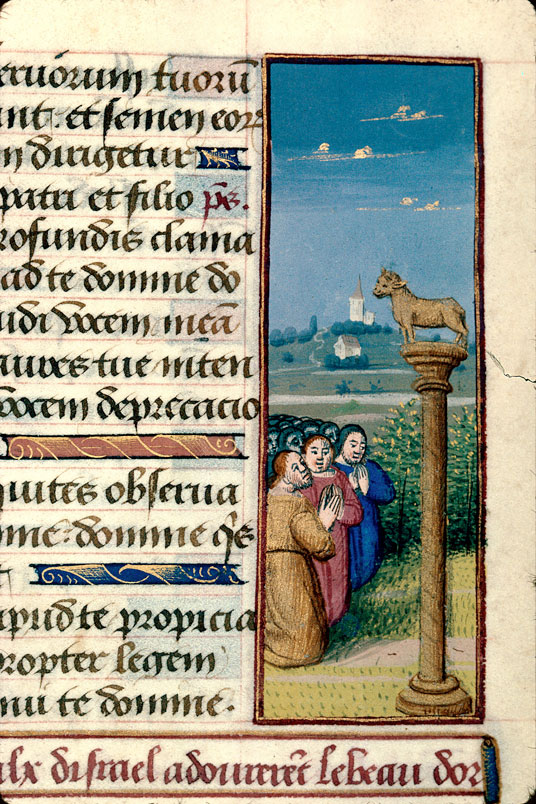 eruorum tuorū
unt. et semen eor
m dirigetur
patri et filio ps.
rofundis clama
ad te domine do
udi vocem meā
aures tue inten
vocem deprecatio
quites obserua
ine: domine qs
apud te propicia
propter legem
nui te domine.
ulx disrael adourerēt le beau dor